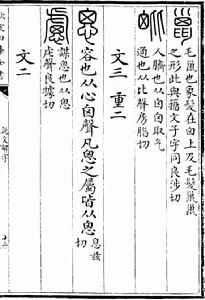 巤 毛巤也象髮在囟上及毛髮巤巤
之形此與籀文子字同良涉切
𣬉 人臍也从囟囟取气
通也从比聲房脂切
文三 重二
思 容也从心囟聲凡思之屬皆从思 息兹
切
慮 謀思也从思
虍聲良據切
文二
說文解字